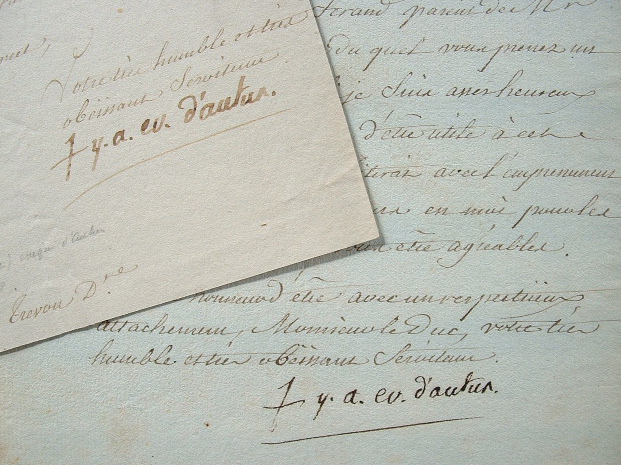 Votre très humble et très
obéissant Serviteur.
† y. a. ev. d'autun.
eveque d'autun
Trevou D.ne
parent de Mr
du quel vous prenez un
je suis assez heureux
d'être utile à cet
avec l'empressement
en moi pour les
être agréables.
d'être avec un respectueux
attachement, Monsieur le Duc, votre très
humble et très obéissant Serviteur.
† y. a. ev. d'autun.